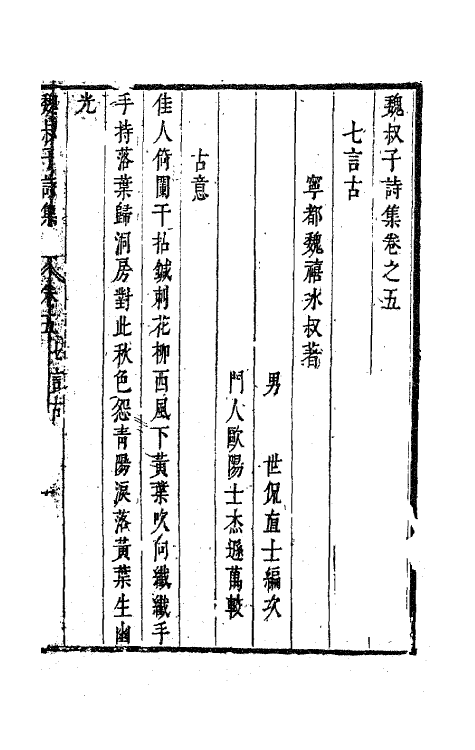 魏叔子詩集卷之五
七言古
寧都魏禧冰叔著
男　世侃直士編次
門人歐陽士杰遜萬較
古意
佳人倚闌干拈鍼刺花柳西風下黃葉吹向纖纖手
手持落葉歸洞房對此秋色怨青陽淚落黃葉生幽
光
魏叔子詩集　卷五七言古　一